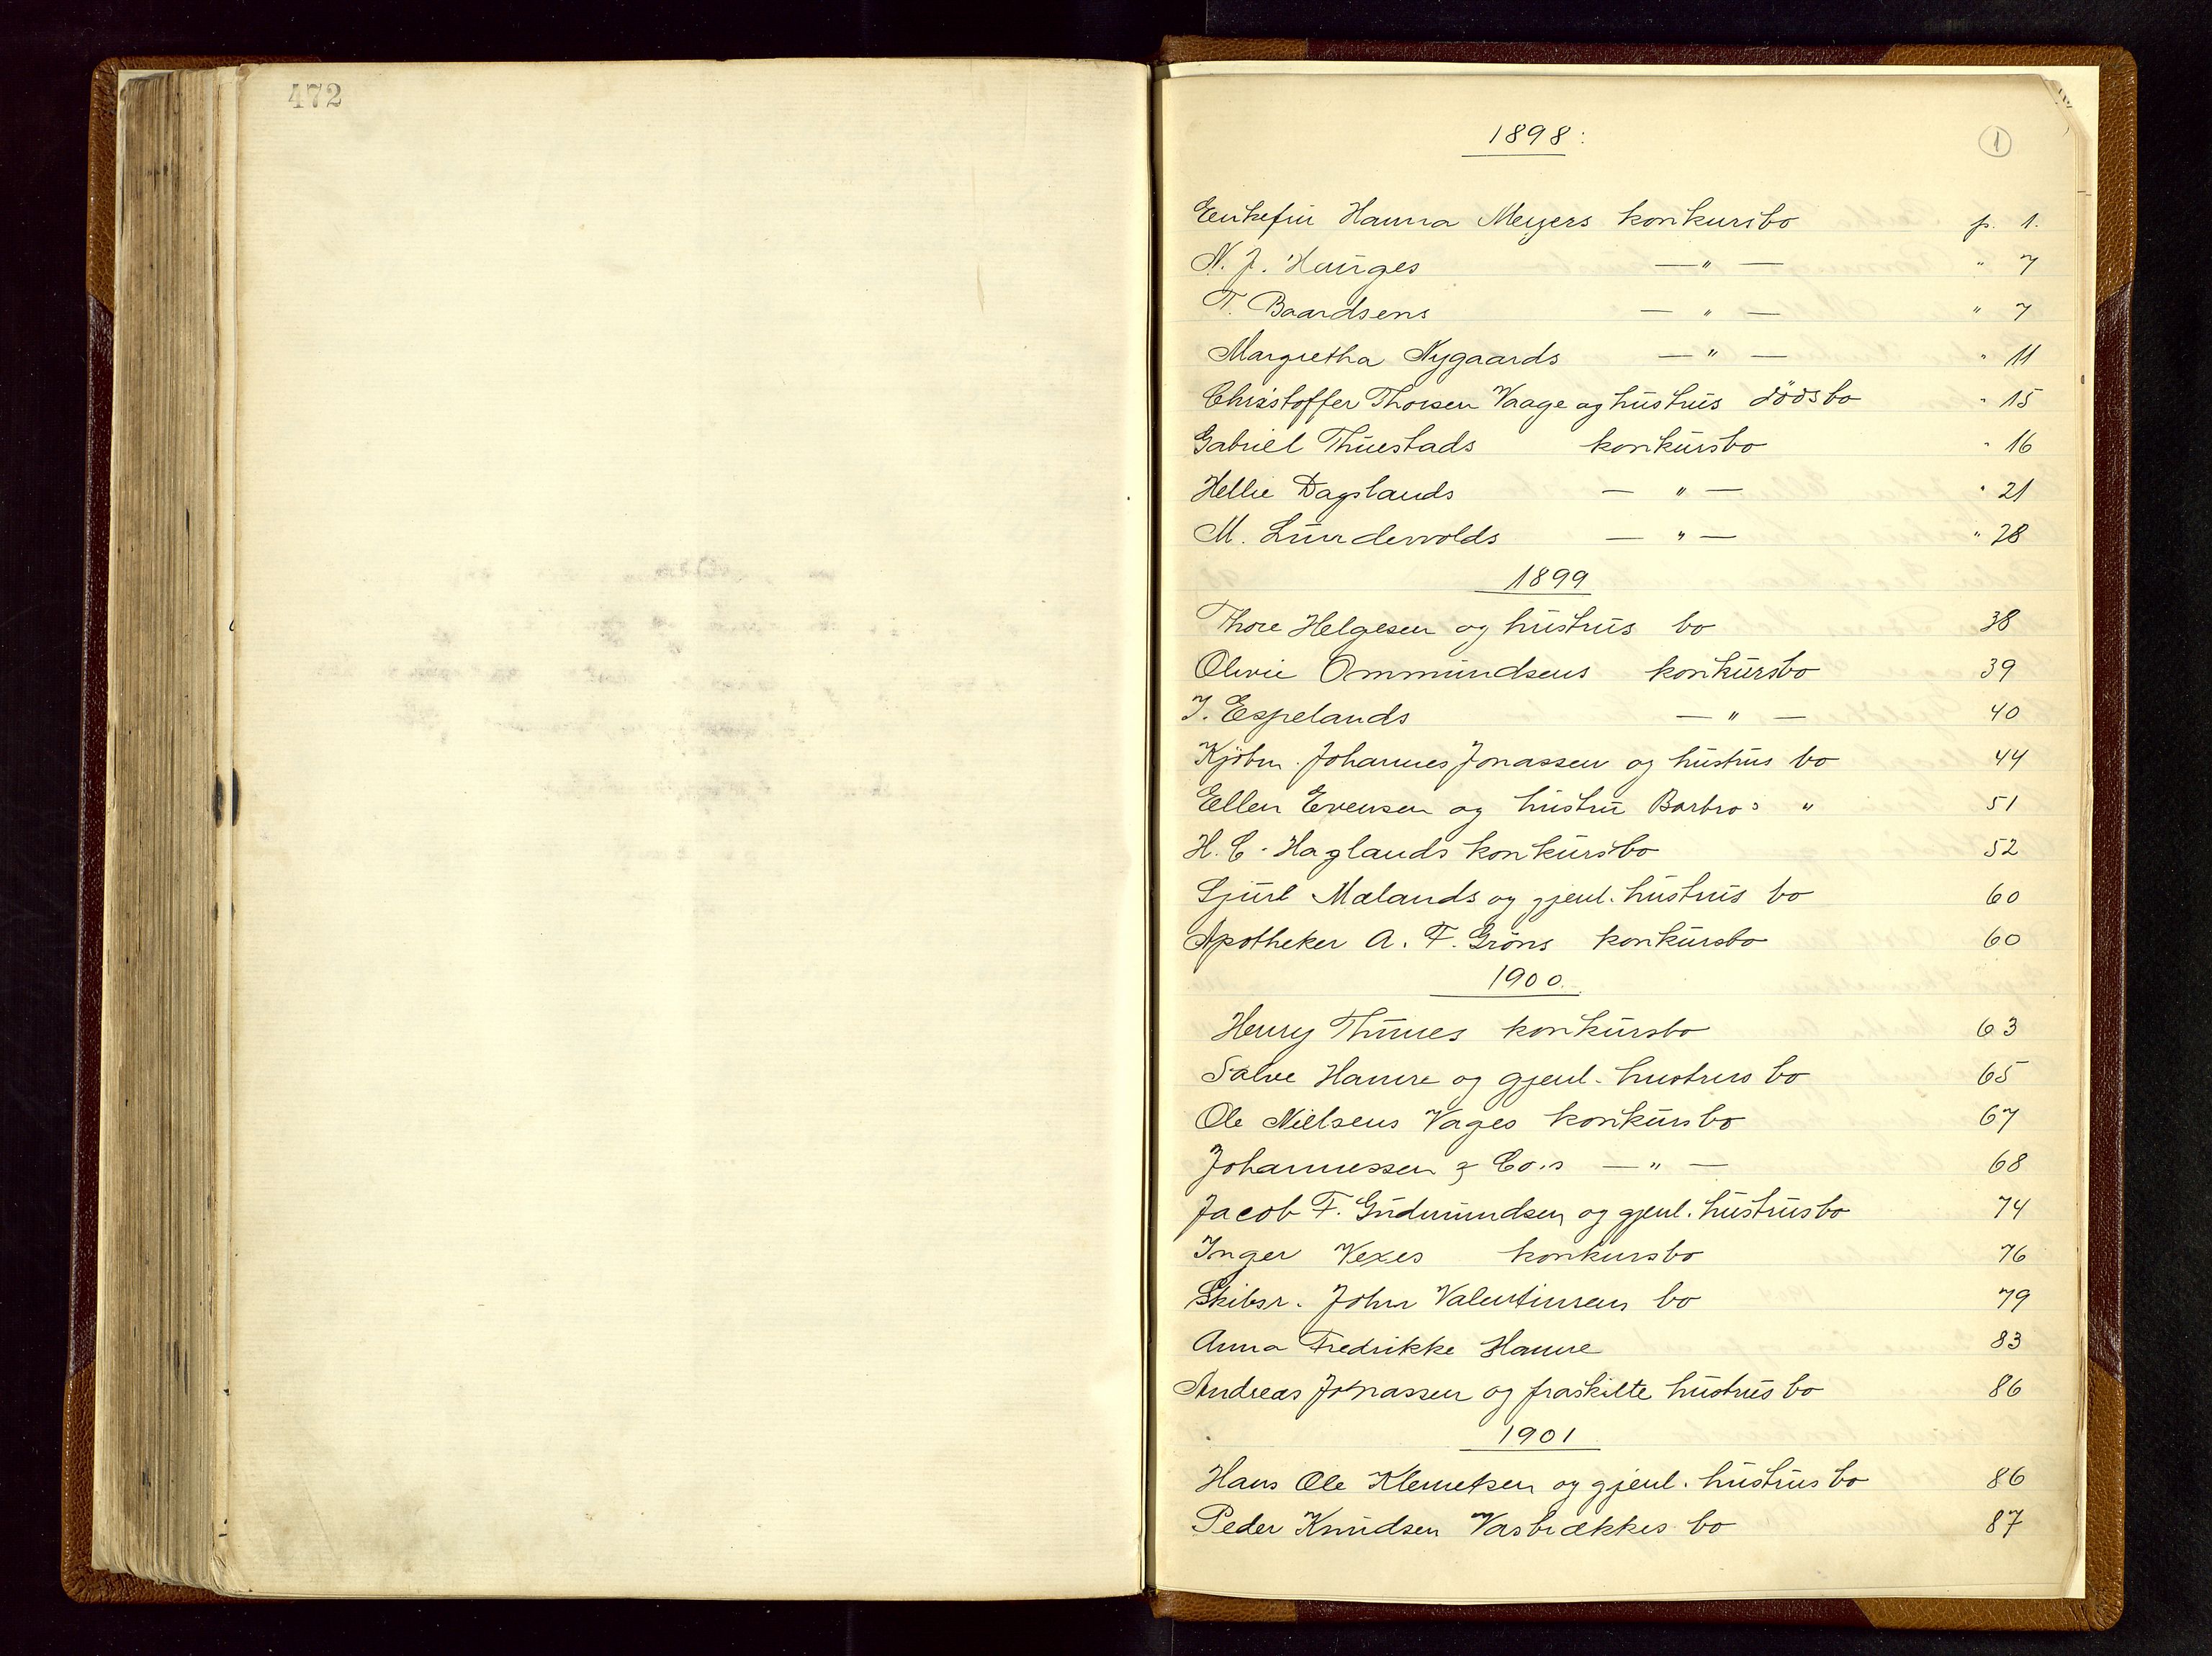 472
1898:
1
Enkefru Hanna Meyers konkursbo p. 1.
N. J. Hauges — " — " 7
T. Baardsens — " — " 7
Margretha Nygaards — " — " 11
Christoffer Thorsen Vaage og hustrus dödsbo " 15
Gabriel Thuestads konkursbo " 16
Hellie Dagslands — " — " 21
M. Lundevolds — " — " 28
1899
Thore Helgesen og hustrus bo 38
Olivie Ommundsens konkursbo 39
I. Espelands — " — 40
Kjöbm. Johannes Jonassen og hustrus bo 44
Ellen Evensen og hustru Barbro's " 51
H. C. Haglands konkursbo 52
Sjurl Mælands og gjenl. hustrus bo 60
Apotheker A. F. Gröns konkursbo 60
1900.
Henry Thunes konkursbo 63
Salve Hamre og gjenl. hustrus bo 65
Ole Nielsens Vages konkursbo 67
Johannessen & Co.s — " — 68
Jacob F. Gudmundsen og gjenl. hustrus bo 74
Inger Vexes konkursbo 76
Skibsr. John Valentinsens bo 79
Anna Fredrikke Hamre 83
Andreas Jonassen og fraskilte hustrus bo 86
1901
Hans Ole Klemetsen og gjenl. hustrus bo 86
Peder Knudsen Vasbrækkes bo 87